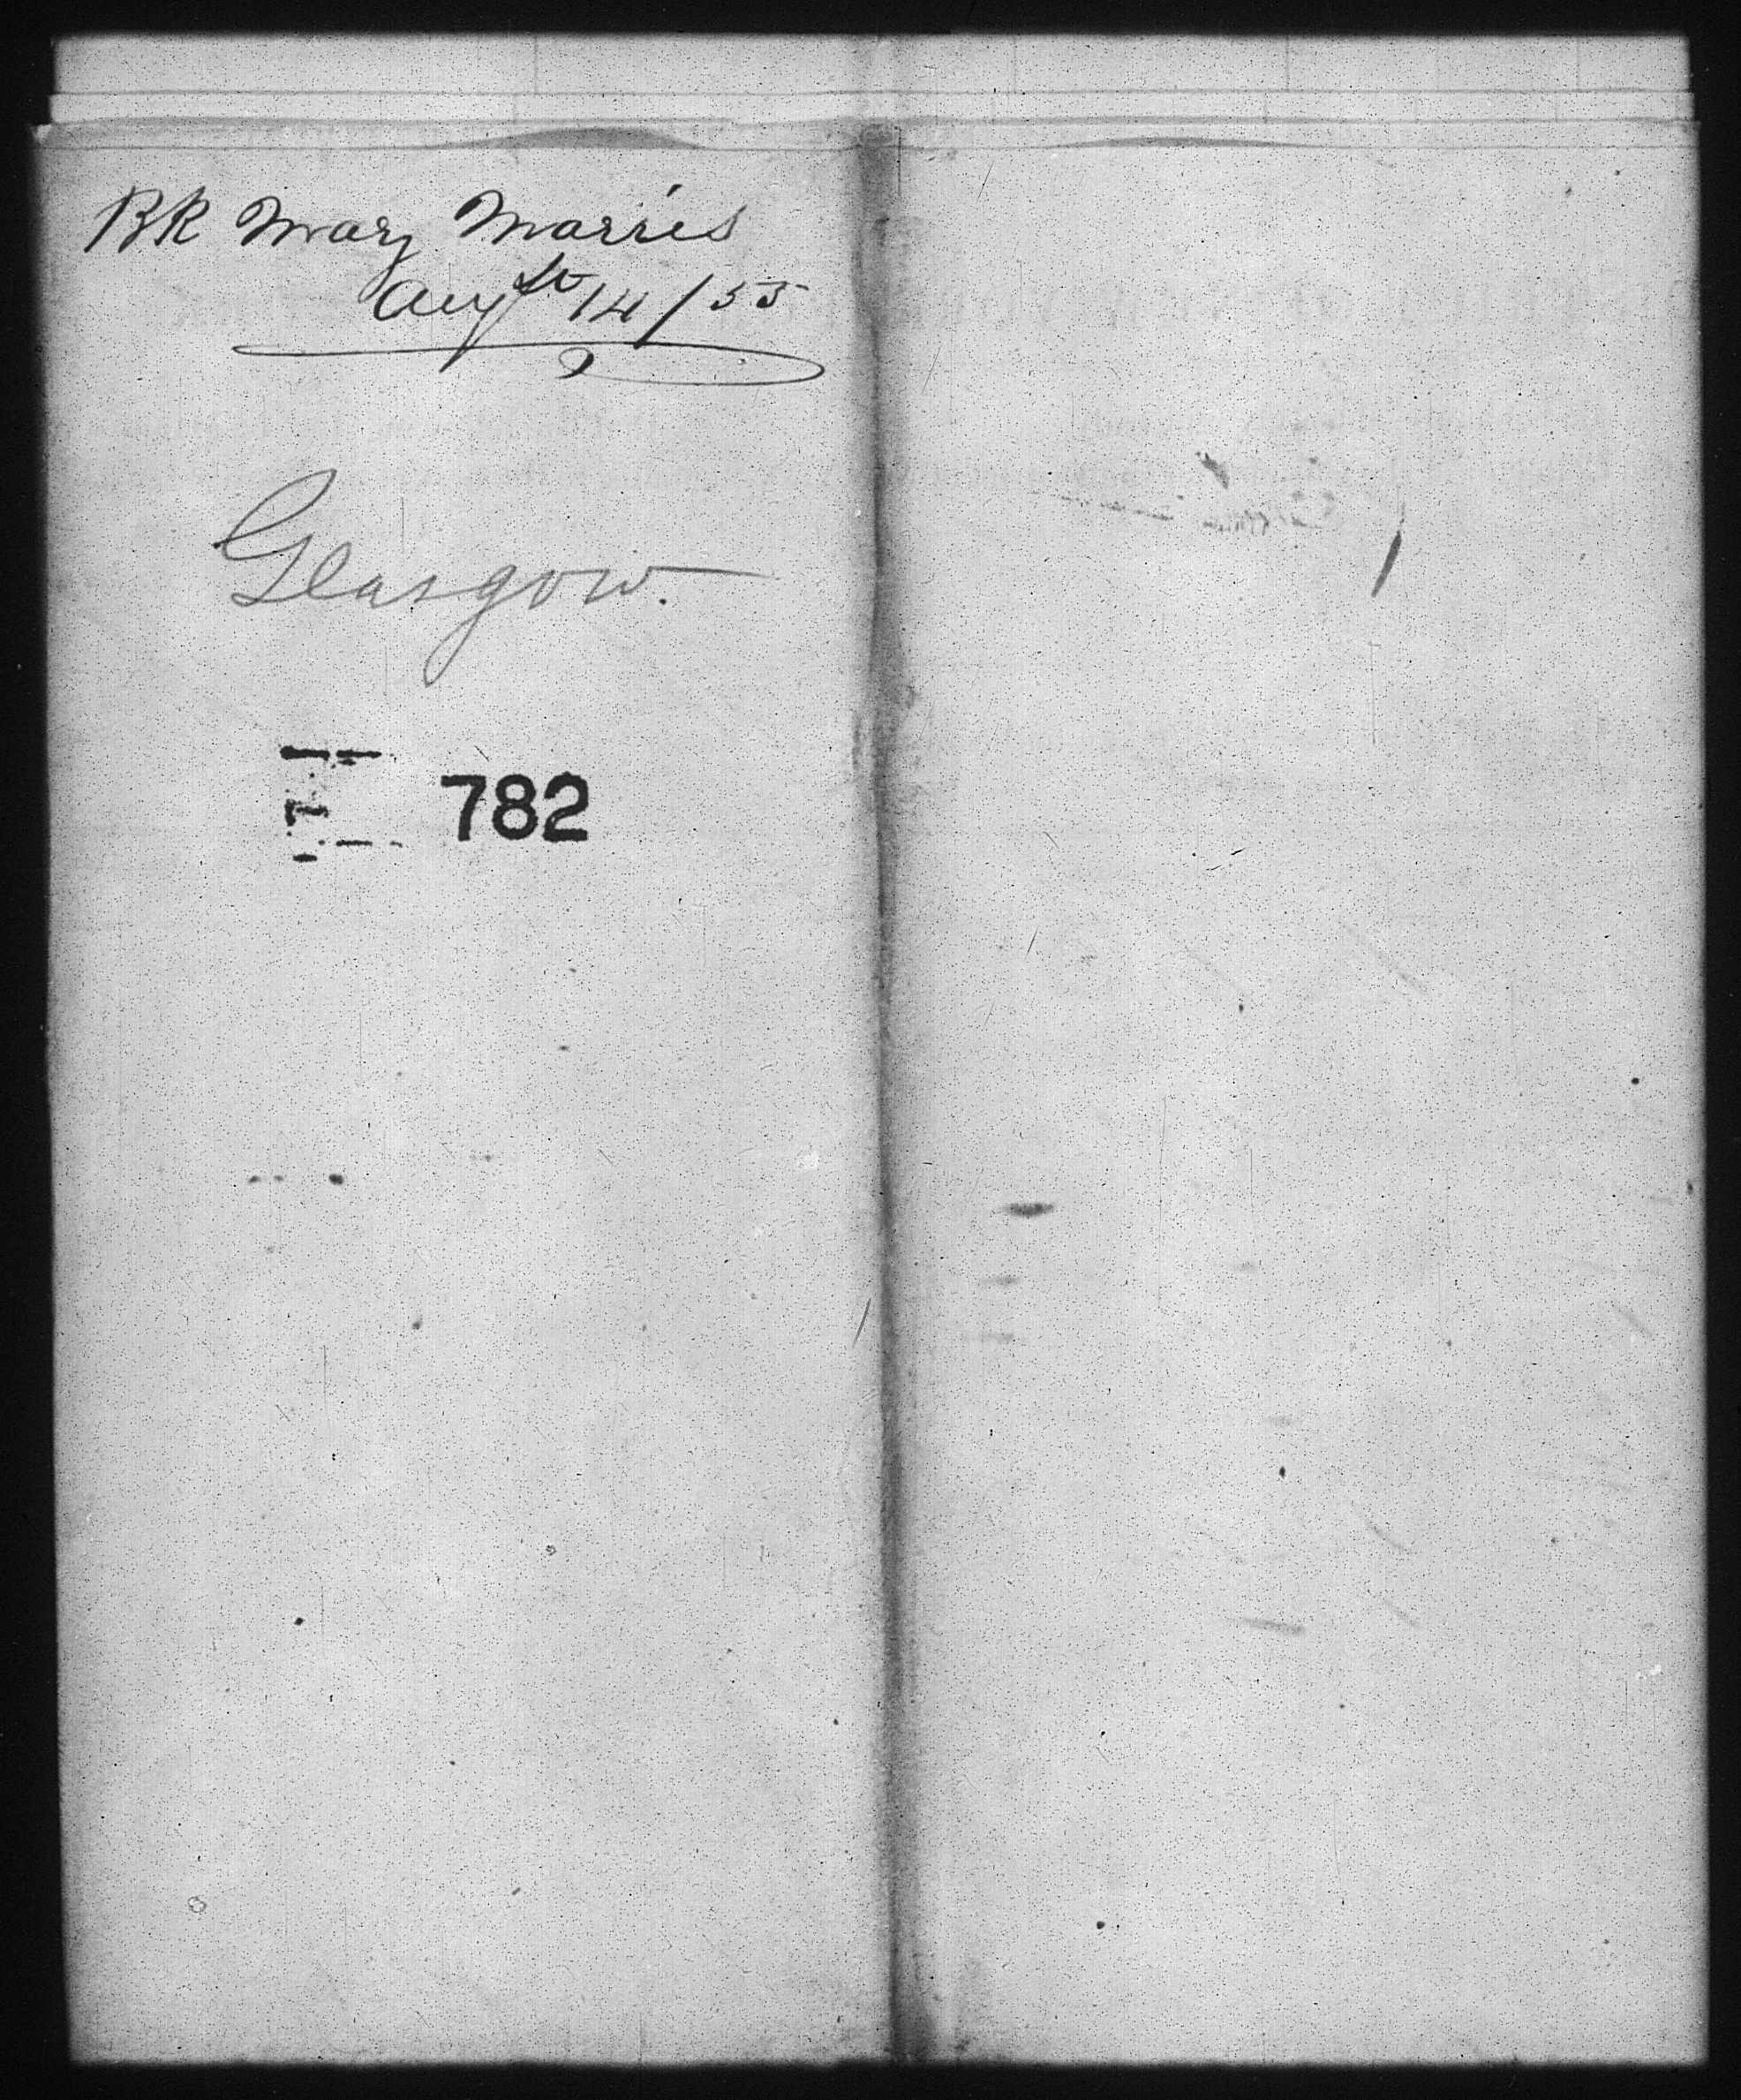 BK Mary Morris
Augst 14/55
Glasgow.
782